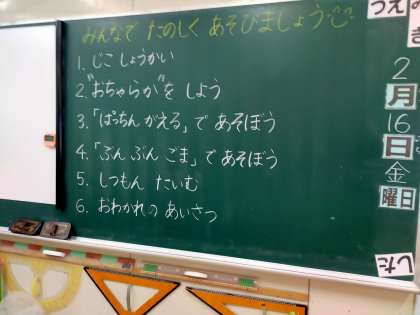 みんなで たのしく あそびましょう
1. じこ しょうかい
2. "おちゃらか"を しよう
3. 「ぱっちん がえる」で あそぼう
4. 「ぶん ぶん ごま」で あそぼう
5. しつもん たいむ
6. おわかれの あいさつ
うえ
2
月
16
日
金
曜日
した